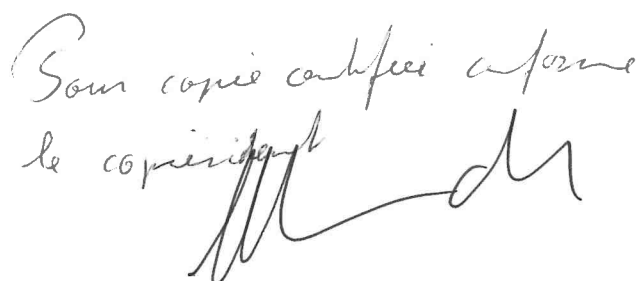 Pour copie certifiée conforme
le coprésident